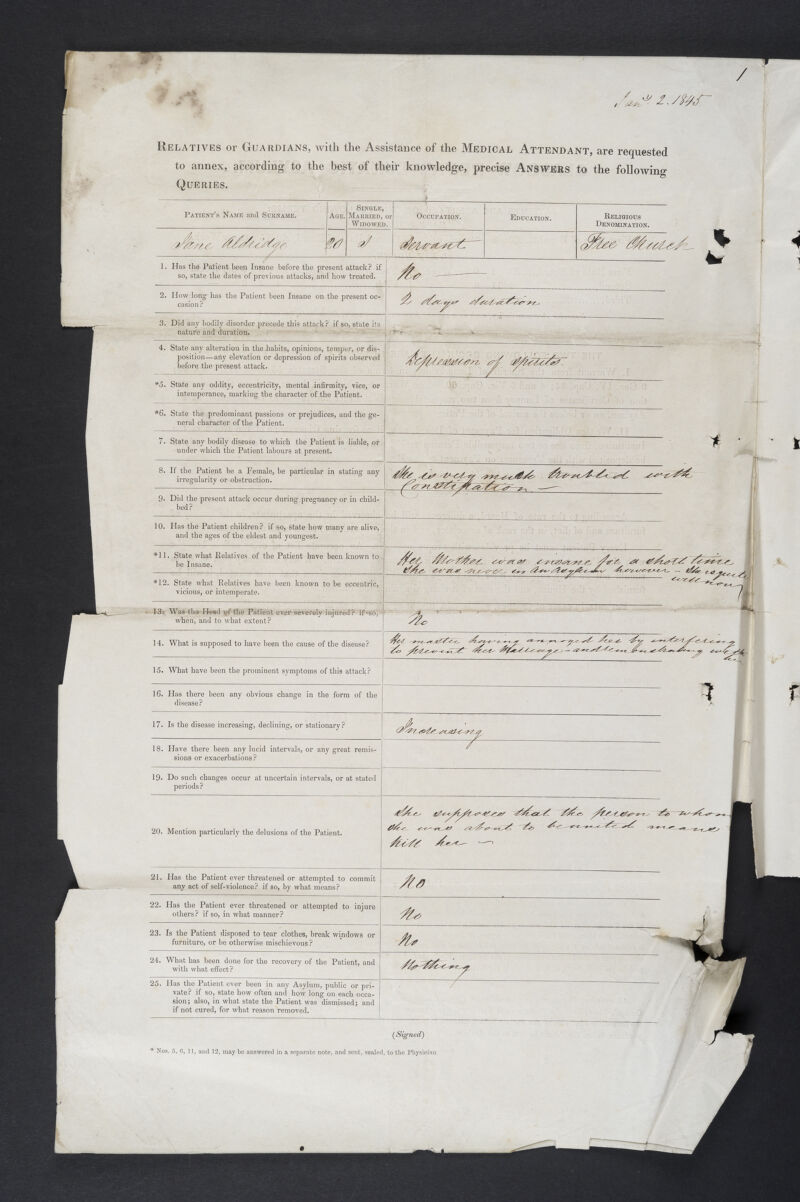 1
Jany 2. 1845
RELATIVES or GUARDIANS, with the Assistance of the MEDICAL ATTENDANT, are requested
to annex, according to the best of their knowledge, precise ANSWERS to the following
QUERIES.
PATIENT'S NAME and SURNAME. AGE. SINGLE, MARRIED, or WIDOWED. OCCUPATION. EDUCATION. RELIGIOUS DENOMINATION.
Jane Aldridge 20 S Servant Free Church
1. Has the Patient been Insane before the present attack? if
so, state the dates of previous attacks, and how treated.
No —
2. How long has the Patient been Insane on the present oc-
casion?
2 days duration
3. Did any bodily disorder precede this attack? if so, state its
nature and duration.
4. State any alteration in the habits, opinions, temper, or dis-
position—any elevation or depression of spirits observed
before the present attack.
Depression of spirits
*5. State any oddity, eccentricity, mental infirmity, vice, or
intemperance, marking the character of the Patient.
*6. State the predominant passions or prejudices, and the ge-
neral character of the Patient.
7. State any bodily disease to which the Patient is liable, or
under which the Patient labours at present.
8. If the Patient be a Female, be particular in stating any
irregularity or obstruction.
She is very much troubled with
Constipation —
9. Did the present attack occur during pregnancy or in child-
bed?
10. Has the Patient children? if so, state how many are alive,
and the ages of the eldest and youngest.
*11. State what Relatives of the Patient have been known to
be Insane.
Her Mother was insane for a short time
She was never in an Asylum however - She is quite
well now
*12. State what Relatives have been known to be eccentric,
vicious, or intemperate.
13. Was the Head of the Patient ever severely injured? if so,
when, and to what extent?
No
14. What is supposed to have been the cause of the disease?
Her master having annoyed her by interfering
to prevent her Marriage - and remonstrating with
her
15. What have been the prominent symptoms of this attack?
16. Has there been any obvious change in the form of the
disease?
17. Is the disease increasing, declining, or stationary?
Increasing
18. Have there been any lucid intervals, or any great remis-
sions or exacerbations?
19. Do such changes occur at uncertain intervals, or at stated
periods?
20. Mention particularly the delusions of the Patient.
She supposes that the person to whom
she was about to be united means
kill her —
21. Has the Patient ever threatened or attempted to commit
any act of self-violence? if so, by what means?
No
22. Has the Patient ever threatened or attempted to injure
others? if so, in what manner?
No
23. Is the Patient disposed to tear clothes, break windows or
furniture, or be otherwise mischievous?
No
24. What has been done for the recovery of the Patient, and
with what effect?
Nothing
25. Has the Patient ever been in any Asylum, public or pri-
vate? if so, state how often and how long on each occa-
sion; also, in what state the Patient was dismissed; and
if not cured, for what reason removed.
(Signed)
* Nos. 5, 6, 11, and 12, may be answered in a separate note, and sent, sealed, to the Physician